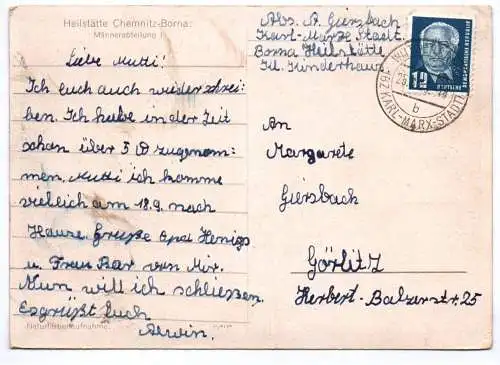 Heilstätte Chemnitz-Borna:
Männerabteilung I
Liebe Mutti!
Ich euch auch wieder schrei-
ben. Ich habe in der Zeit
schon über 5 ℔ zugenom-
men. Mutti ich komme
vieleich am 18.9. nach
Hause. Grüße Opa Henigs
u Frau Bar von Mir.
Nun will ich schließen
Es grüßt Euch
Erwin.
Naturfarbenaufnahme
Abs. A. Giersbach
Karl-Marx-Stadt.
Borna Heilstätte
Kl. Kinderhaus.
12
DEUTSCHE
DEMOKRATISCHE REPUBLIK
b
KARL-MARX-STADT
An
Margarete
Giersbach
Görlitz
Herbert-Balzerstr 25